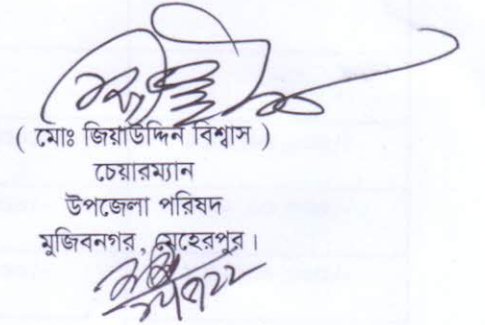 ( মোঃ জিয়াউদ্দিন বিশ্বাস )
চেয়ারম্যান
উপজেলা পরিষদ
মুজিবনগর, মেহেরপুর।